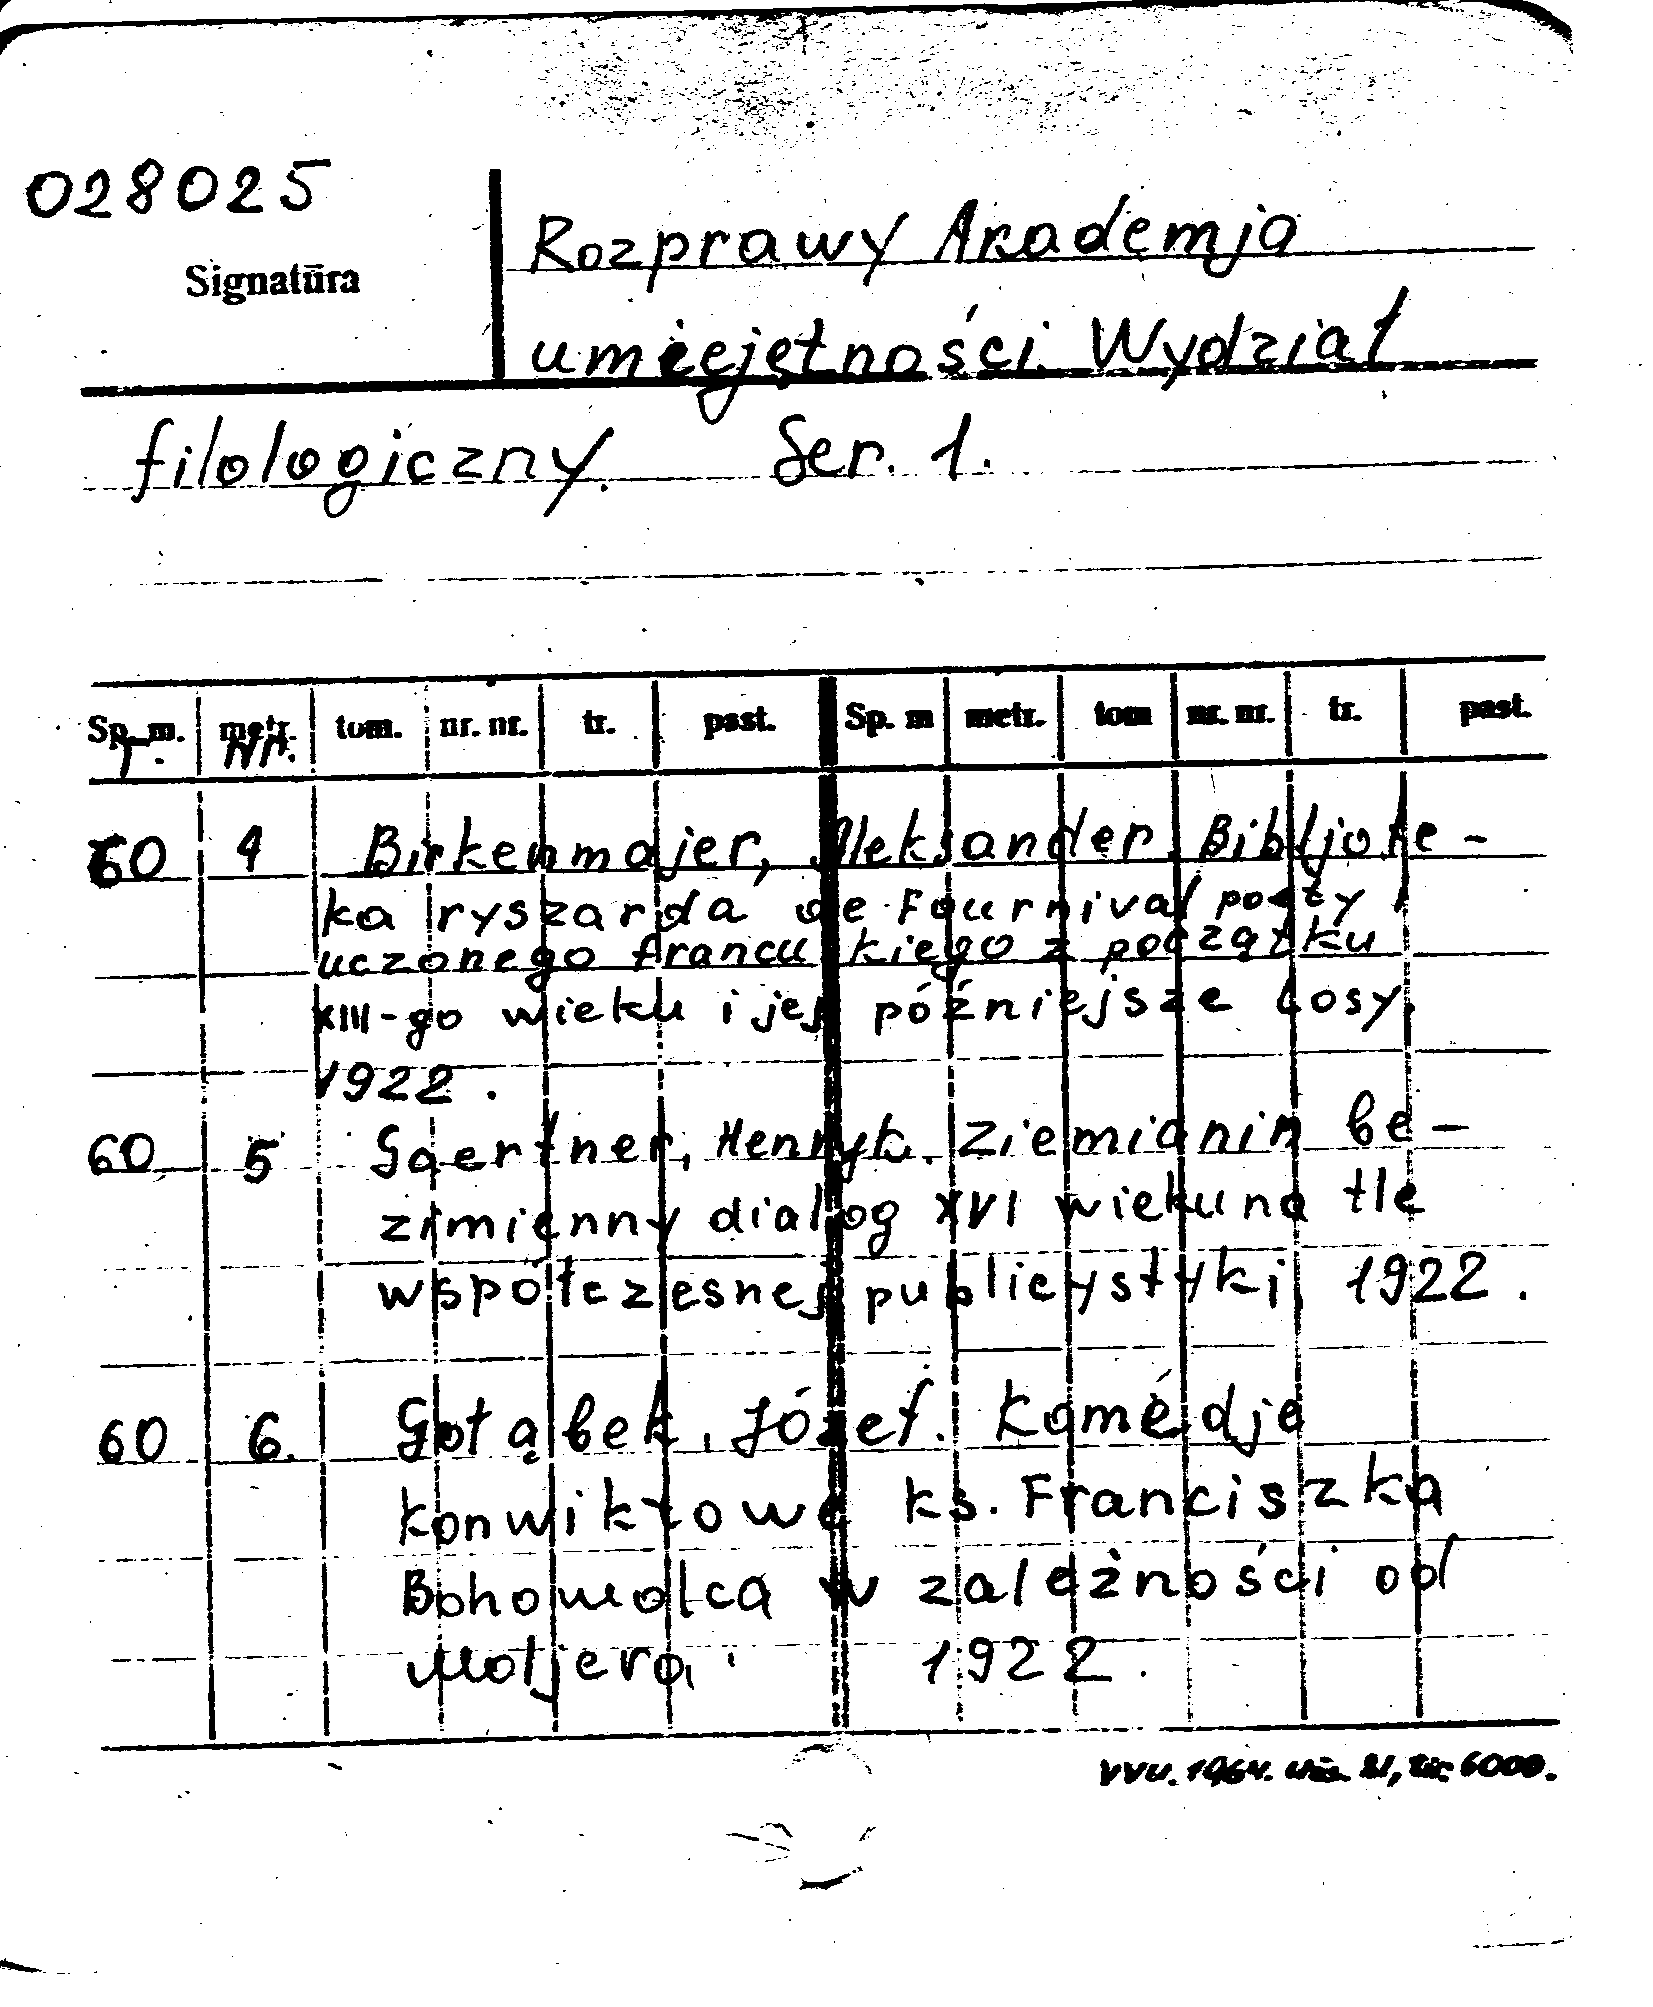 028025
Signatūra
Rozprawy Akademja
umiejętności. Wydział
filologiczny. Ser. 1.
Sp. m. metr. tom. nr. nr. tr. past. Sp. m metr. tom nr. nr. tr. past.
T. Nr.
60 4 Birkenmajer, Aleksander. Bibljote-
ka ryszarda de Fournival poety i
uczonego francuskiego z początku
XIII-go wieku i jej późniejsze losy.
1922.
60 5 Gaertner, Henryk. Ziemianin be-
zimienny dialog XVI wieku na tle
współczesnej publicystyki 1922.
60 6. Gołąbek, Józef. Komedje
konwiktowe ks. Franciszka
Bohomolca w zależności od
Moljera. 1922.
VVU. 1964. Užs. 21, tir. 6000.